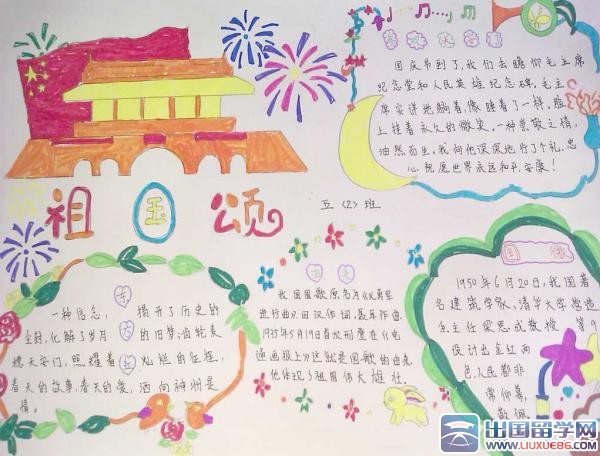 祖国颂
五〈2〉班
国庆节到了,我们去瞻仰毛主席
纪念堂和人民英雄纪念碑,毛主
席安详地躺着,像睡着了一样,脸
上挂着永久的微笑。一种崇敬之情,
油然而生,我向他深深地行了个礼,忠
心祝愿世界永远和平、安康!
一种信念,
揭开了历史的
尘封,化解了岁月
的旧梦;齿轮麦
穗天安门,照耀着
灿烂的征程,
春天的故事,春天的爱,洒向神州是
情。
国
我国国歌原名为《义勇军
进行曲》,田汉作词,聂耳作曲,
1935年5月19日首次刊登在《电
通画报上》这就是国歌的由来
他体现了祖国伟大雄壮。
国徽
1950年6月20日,我国著
名建筑学家、清华大学营造
系主任梁思成教授
第9
设计出金红两
色,人民都非
常仰慕,
敬佩
出国留学网
LIUXUE86.COM